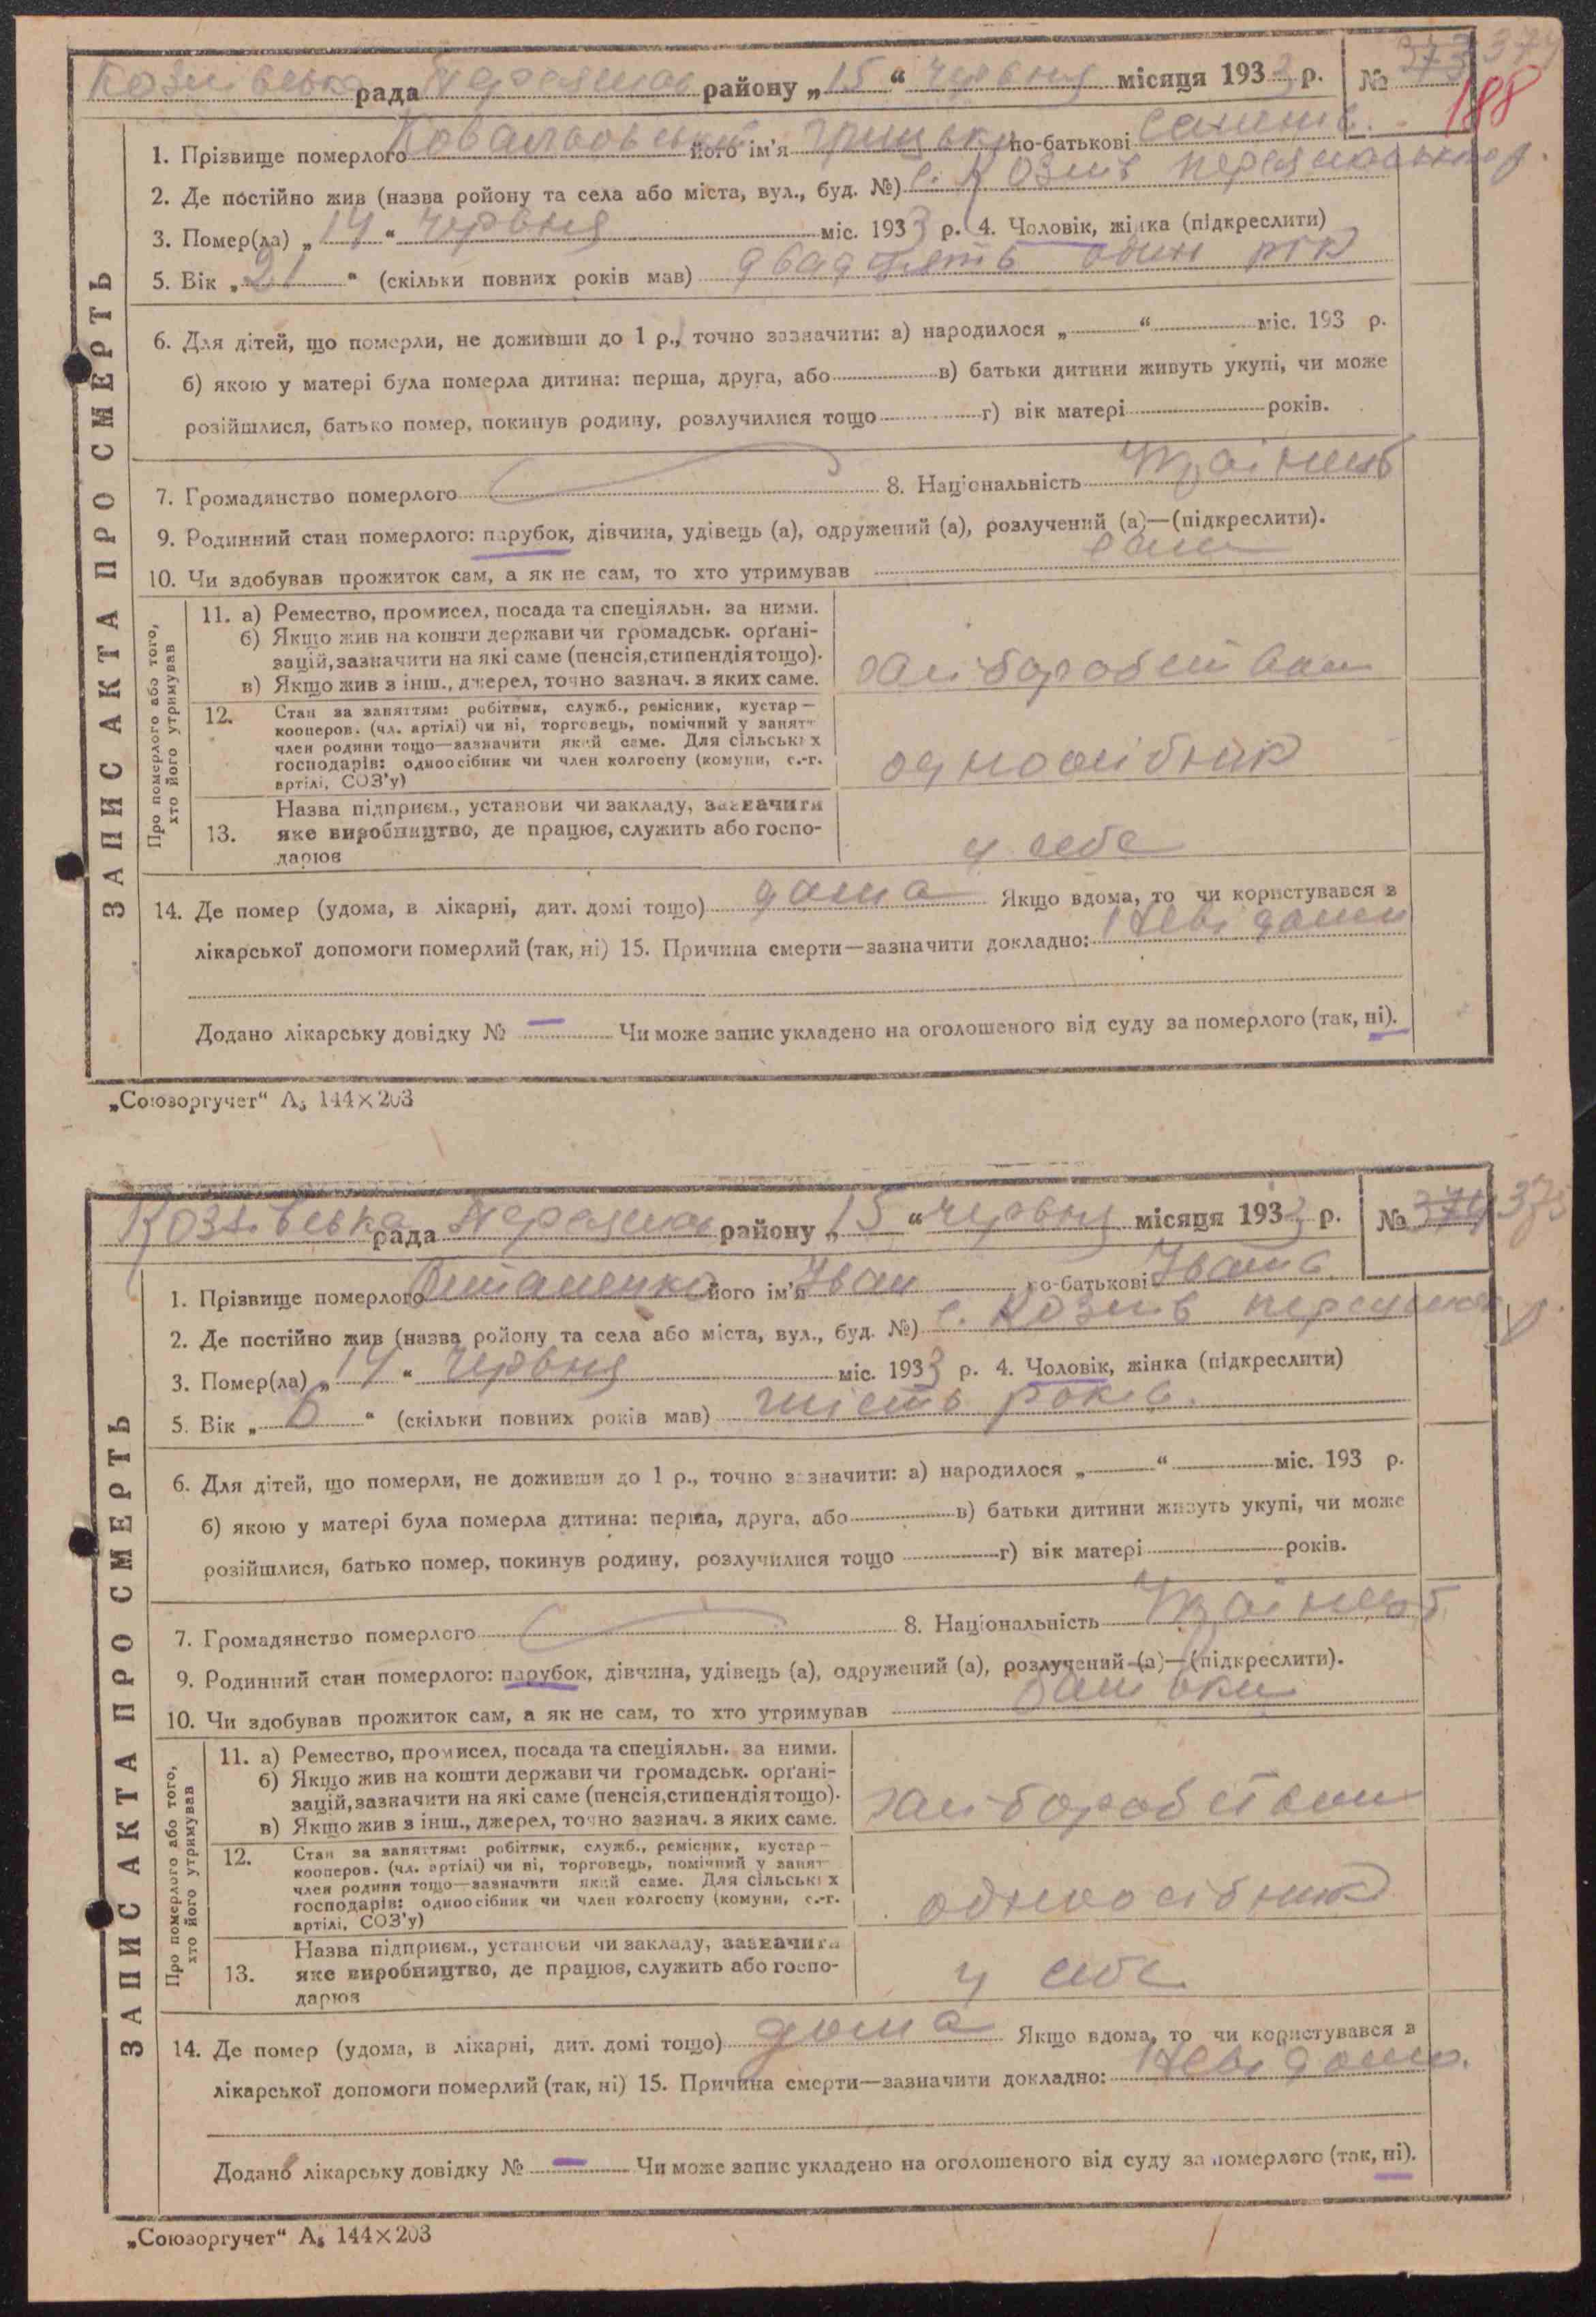 Козіївська рада Переяслов району „15“ червня місяця 1933 р. № 373 374
188
1. Прізвище померлого Ковальовський його ім'я Грицько по-батькові
2. Де постійно жив (назва ройону та села або міста, вул., буд. №) с. Козіїв
3. Помер(ла) „14“ червня міс. 1933 р. 4. Чоловік, жінка (підкреслити)
5. Вік „21“ (скільки повних років мав) двадцять один рік
6. Для дітей, що померли, не доживши до 1 р., точно зазначити: а) народилося „ “ міс. 193 р.
б) якою у матері була померла дитина: перша, друга, або в) батьки дитини живуть укупі, чи може
розійшлися, батько помер, покинув родину, розлучилися тощо г) вік матері років.
7. Громадянство померлого 8. Національність Українець
9. Родинний стан померлого: парубок, дівчина, удівець (а), одружений (а), розлучений (а)—(підкреслити).
10. Чи здобував прожиток сам, а як не сам, то хто утримував сам
ЗАПИС АКТА ПРО СМЕРТЬ
Про померлого або того, хто його утримував
11. а) Ремество, промисел, посада та спеціяльн. за ними.
б) Якщо жив на кошти держави чи громадськ. орґані-
зацій, зазначити на які саме (пенсія, стипендія тощо).
в) Якщо жив з інш., джерел, точно зазнач. з яких саме.
хліборобством
12. Стан за заняттям: робітник, служб., ремісник, кустар—
кооперов. (чл. артілі) чи ні, торговець, помічний у занятт
член родини тощо—зазначити який саме. Для сільських
господарів: одноосібник чи член колгоспу (комуни, с.-г.
артілі, СОЗ'у)
одноосібник
13. Назва підприєм., установи чи закладу, зазначити
яке виробництво, де працює, служить або госпо-
дарює
у себе
14. Де помер (удома, в лікарні, дит. домі тощо) дома Якщо вдома, то чи користувався з
лікарської допомоги померлий (так, ні) 15. Причина смерти—зазначити докладно: Невідома
Додано лікарську довідку № — Чи може запис укладено на оголошеного від суду за померлого (так, ні).
„Союзоргучет“ А₅ 144×203
Козіївська рада Переяслов району „15“ червня місяця 1933 р. № 374 375
1. Прізвище померлого його ім'я Іван по-батькові Іванів
2. Де постійно жив (назва ройону та села або міста, вул., буд. №) с. Козіїв
3. Помер(ла) „14“ червня міс. 1933 р. 4. Чоловік, жінка (підкреслити)
5. Вік „6“ (скільки повних років мав) шість років.
6. Для дітей, що померли, не доживши до 1 р., точно зазначити: а) народилося „ “ міс. 193 р.
б) якою у матері була померла дитина: перша, друга, або в) батьки дитини живуть укупі, чи може
розійшлися, батько помер, покинув родину, розлучилися тощо г) вік матері років.
7. Громадянство померлого 8. Національність Українець
9. Родинний стан померлого: парубок, дівчина, удівець (а), одружений (а), розлучений (а)—(підкреслити).
10. Чи здобував прожиток сам, а як не сам, то хто утримував батьки
ЗАПИС АКТА ПРО СМЕРТЬ
Про померлого або того, хто його утримував
11. а) Ремество, промисел, посада та спеціяльн. за ними.
б) Якщо жив на кошти держави чи громадськ. орґані-
зацій, зазначити на які саме (пенсія, стипендія тощо).
в) Якщо жив з інш., джерел, точно зазнач. з яких саме.
хліборобством
12. Стан за заняттям: робітник, служб., ремісник, кустар—
кооперов. (чл. артілі) чи ні, торговець, помічний у занят
член родини тощо—зазначити який саме. Для сільських
господарів: одноосібник чи член колгоспу (комуни, с.-г.
артілі, СОЗ'у)
одноосібник
13. Назва підприєм., установи чи закладу, зазначити
яке виробництво, де працює, служить або госпо-
дарює
у себе
14. Де помер (удома, в лікарні, дит. домі тощо) дома Якщо вдома, то чи користувався з
лікарської допомоги померлий (так, ні) 15. Причина смерти—зазначити докладно: Невідомо.
Додано лікарську довідку № — Чи може запис укладено на оголошеного від суду за померлого (так, ні).
„Союзоргучет“ А₅ 144×203